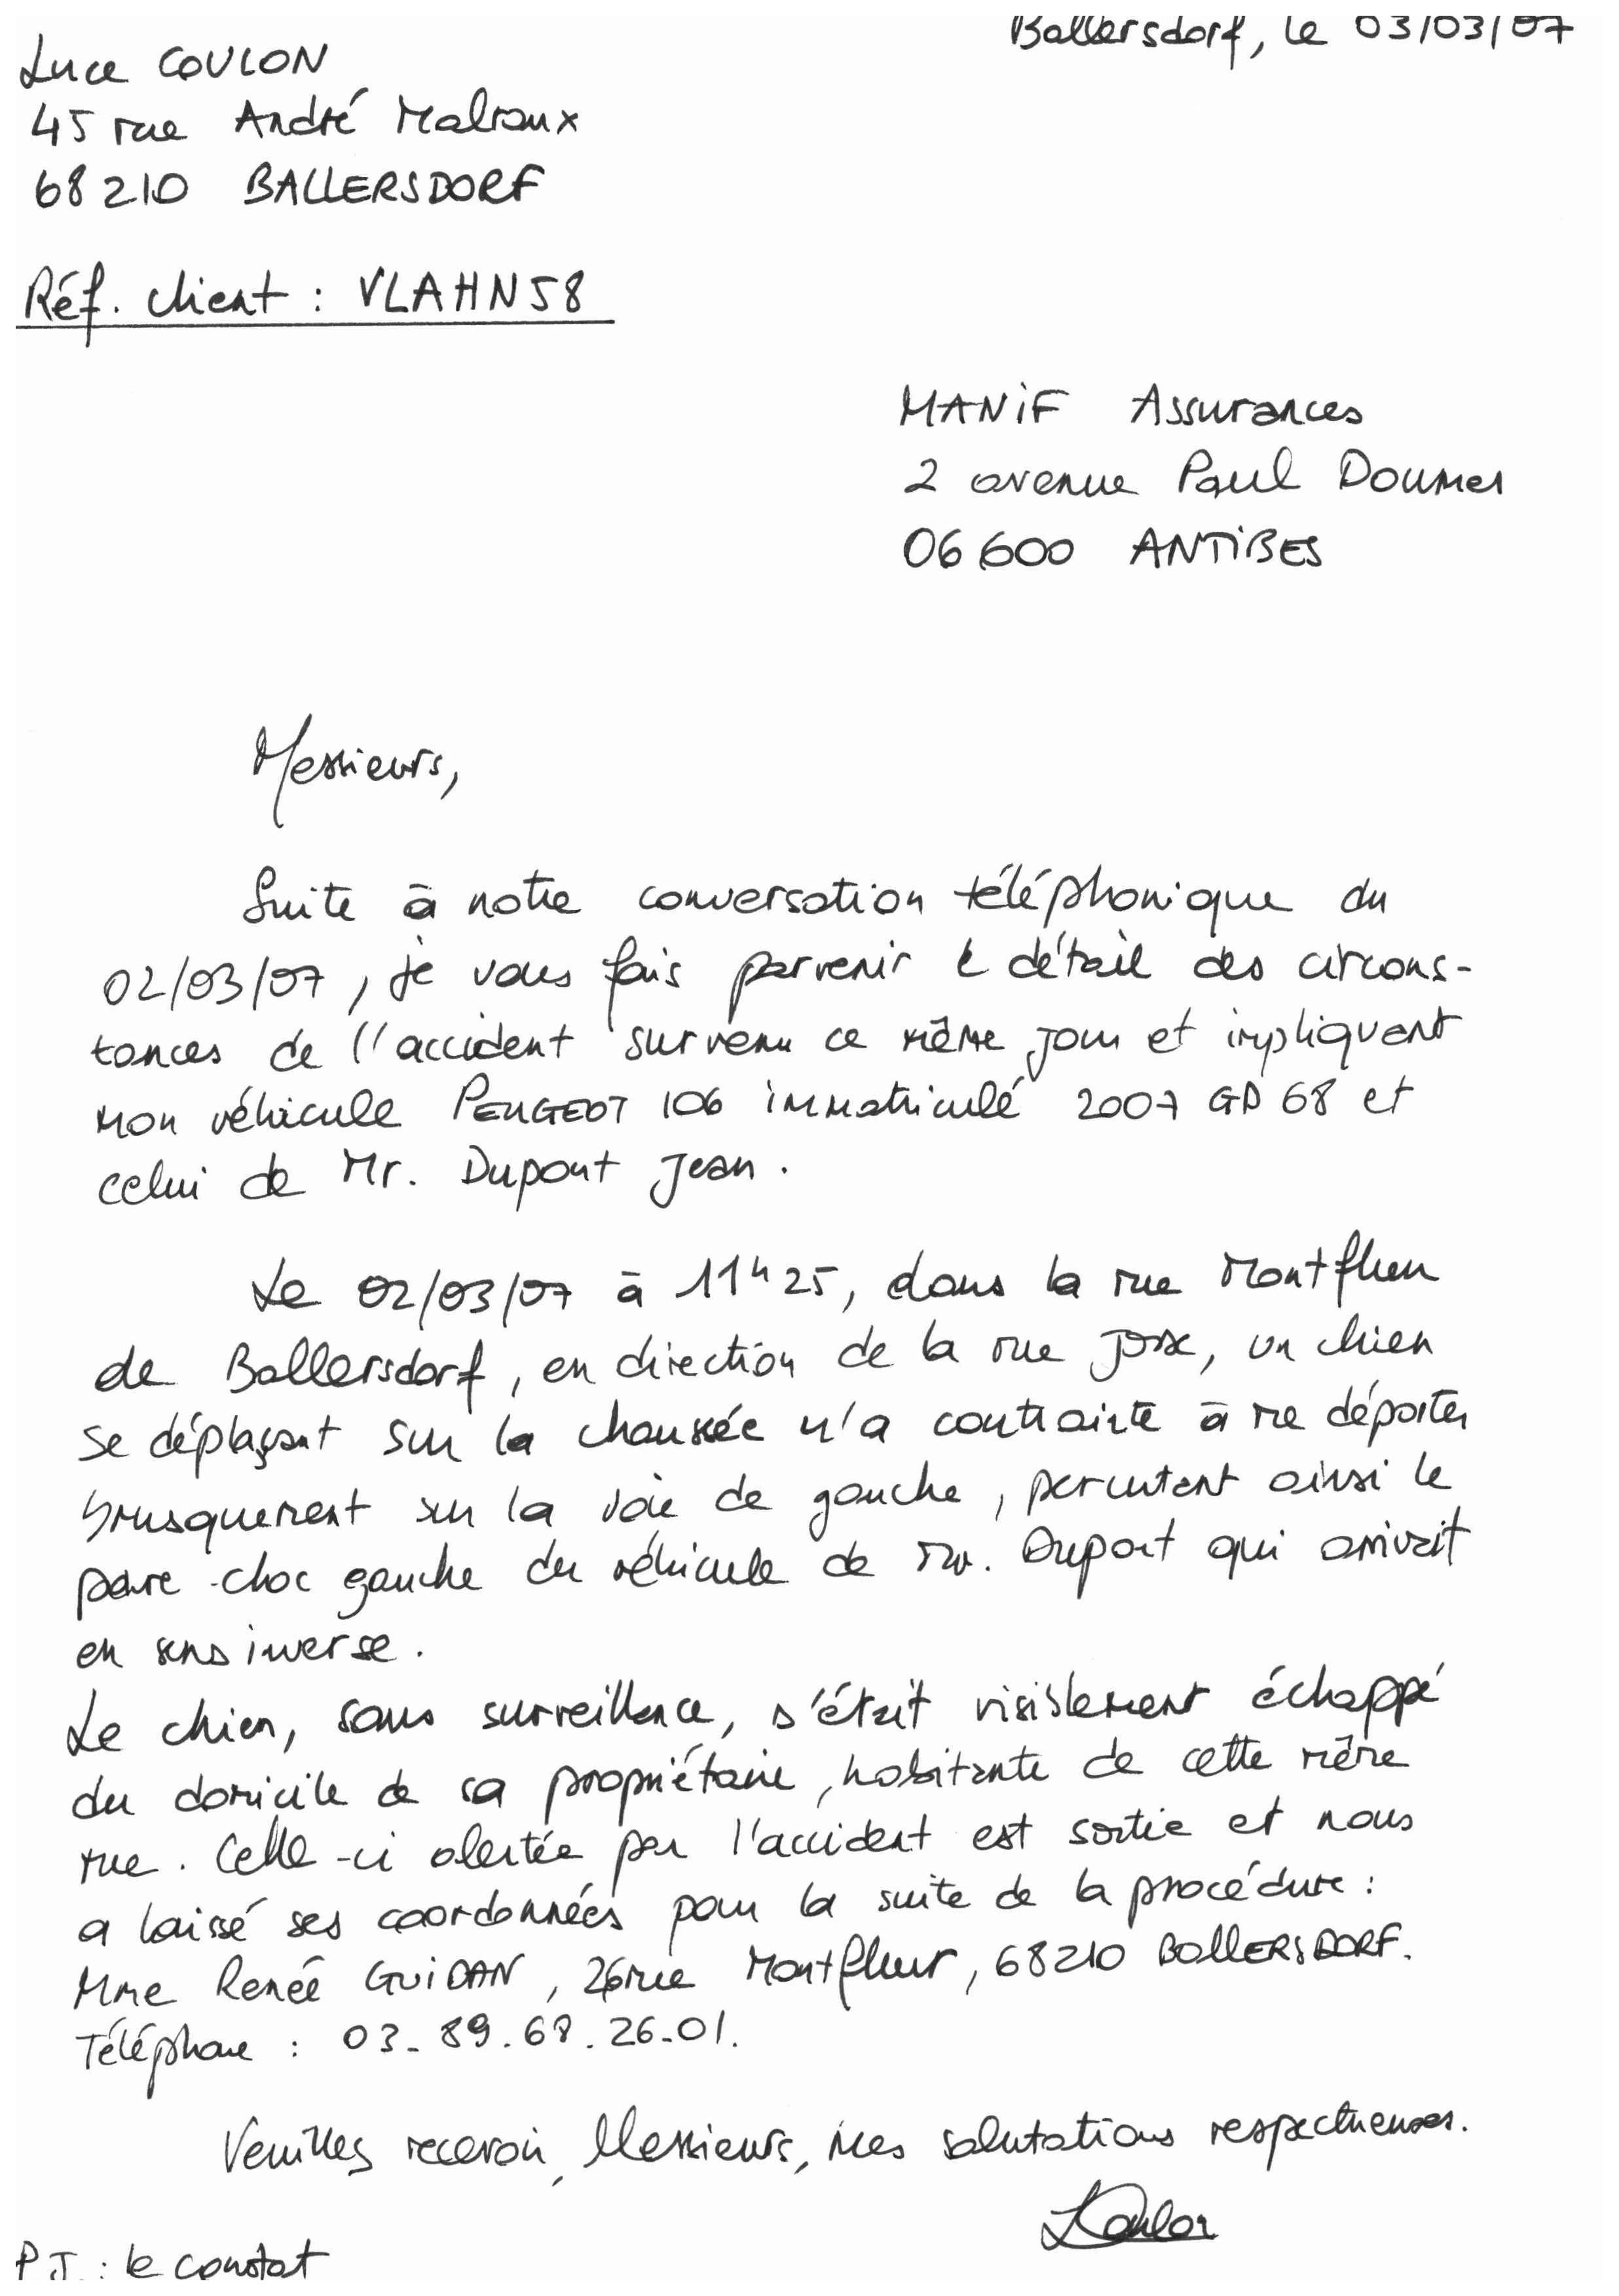 Ballersdorf, le 03/03/07
Luce COULON
45 rue André Malraux
68210 BALLERSDORF
Réf. client : VLAHN58
MANiF Assurances
2 avenue Paul Doumer
06600 ANTiBES
Messieurs,
Suite à notre conversation téléphonique du
02/03/07, je vous fais parvenir le détail des circons-
tances de l'accident survenu ce même jour et impliquant
mon véhicule PEUGEOT 106 immatriculé 2007 GD 68 et
celui de Mr. Dupont Jean.
Le 02/03/07 à 11h25, dans la rue Montfleur
de Ballersdorf, en direction de la rue Joxe, un chien
se déplaçant sur la chaussée m'a contrainte à me déporter
brusquement sur la voie de gauche, percutant ainsi le
pare-choc gauche du véhicule de Mr. Dupont qui arrivait
en sens inverse.
Le chien, sans surveillance, s'était visiblement échappé
du domicile de sa propriétaire, habitante de cette même
rue. Celle-ci alertée par l'accident est sortie et nous
a laissé ses coordonnées pour la suite de la procédure :
Mme Renée GUiDAN, 26 rue Montfleur, 68210 BALLERSDORF.
Téléphone : 03.89.68.26.01.
Veuillez recevoir, Messieurs, mes salutations respectueuses.
LCoulon
P.J. : le constat